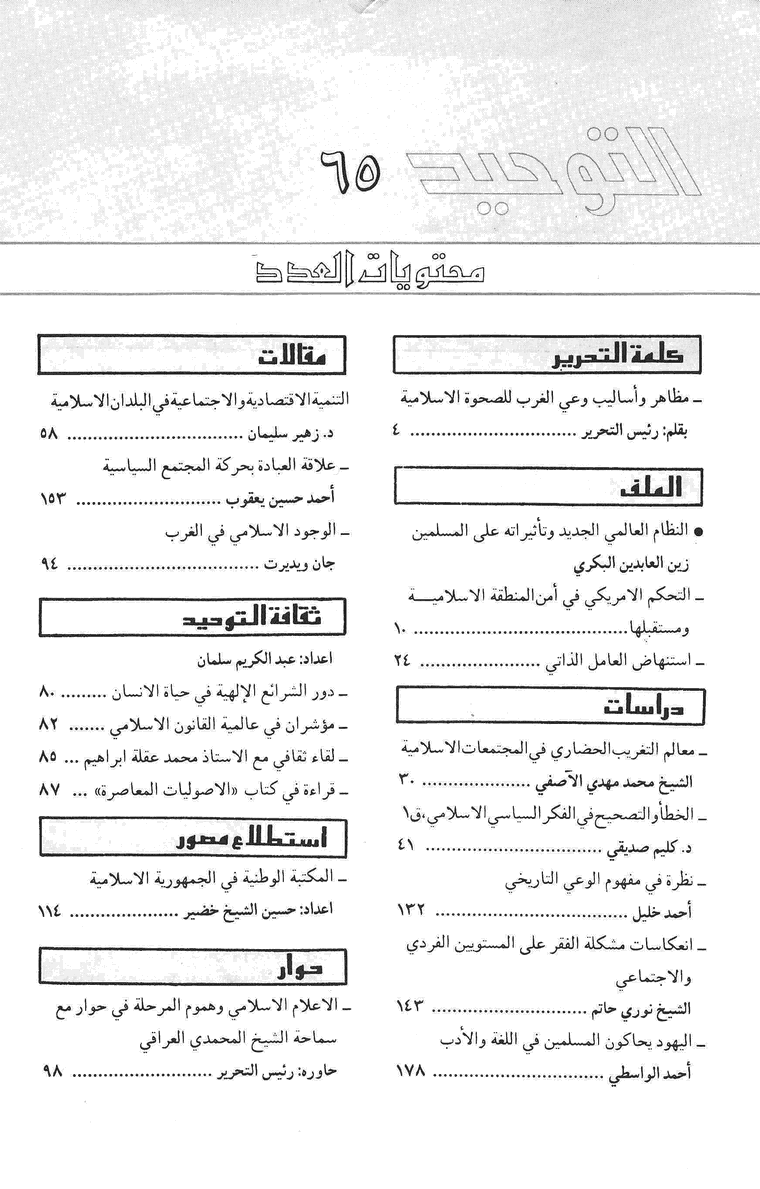 التوحيد ٦٥
محتويات العدد
كلمة التحرير
ـ مظاهر وأساليب وعي الغرب للصحوة الاسلامية
بقلم: رئيس التحرير ................................ ٤
الملف
● النظام العالمي الجديد وتأثيراته على المسلمين
زين العابدين البكري
ـ التحكم الامريكي في أمن المنطقة الاسلاميــة
ومستقبلها .................................... ١٠
ـ استنهاض العامل الذاتي ....................... ٢٤
دراسات
ـ معالم التغريب الحضاري في المجتمعات الاسلامية
الشيخ محمد مهدي الآصفي ..................... ٣٠
ـ الخطأ والتصحيح في الفكر السياسي الاسلامي، ق١
د. كليم صديقي .................................. ٤١
ـ نظرة في مفهوم الوعي التاريخي
أحمد خليل ..................................... ١٣٢
ـ انعكاسات مشكلة الفقر على المستويين الفردي
والاجتماعي
الشيخ نوري حاتم .............................. ١٤٣
ـ اليهود يحاكون المسلمين في اللغة والأدب
أحمد الواسطي ................................. ١٧٨
مقالات
التنمية الاقتصادية والاجتماعية في البلدان الاسلامية
د. زهير سليمان .................................. ٥٨
ـ علاقة العبادة بحركة المجتمع السياسية
أحمد حسين يعقوب ............................ ١٥٣
ـ الوجود الاسلامي في الغرب
جان ويديرت ..................................... ٩٤
ثقافة التوحيد
اعداد: عبد الكريم سلمان
ـ دور الشرائع الإلهية في حياة الانسان ......... ٨٠
ـ مؤشران في عالمية القانون الاسلامي ....... ٨٢
ـ لقاء ثقافي مع الاستاذ محمد عقلة ابراهيم ... ٨٥
ـ قراءة في كتاب «الاصوليات المعاصرة» ... ٨٧
استطلاع مصور
ـ المكتبة الوطنية في الجمهورية الاسلامية
اعداد: حسين الشيخ خضير ..................... ١١٤
حوار
ـ الاعلام الاسلامي وهموم المرحلة في حوار مع
سماحة الشيخ المحمدي العراقي
حاوره: رئيس التحرير ........................... ٩٨